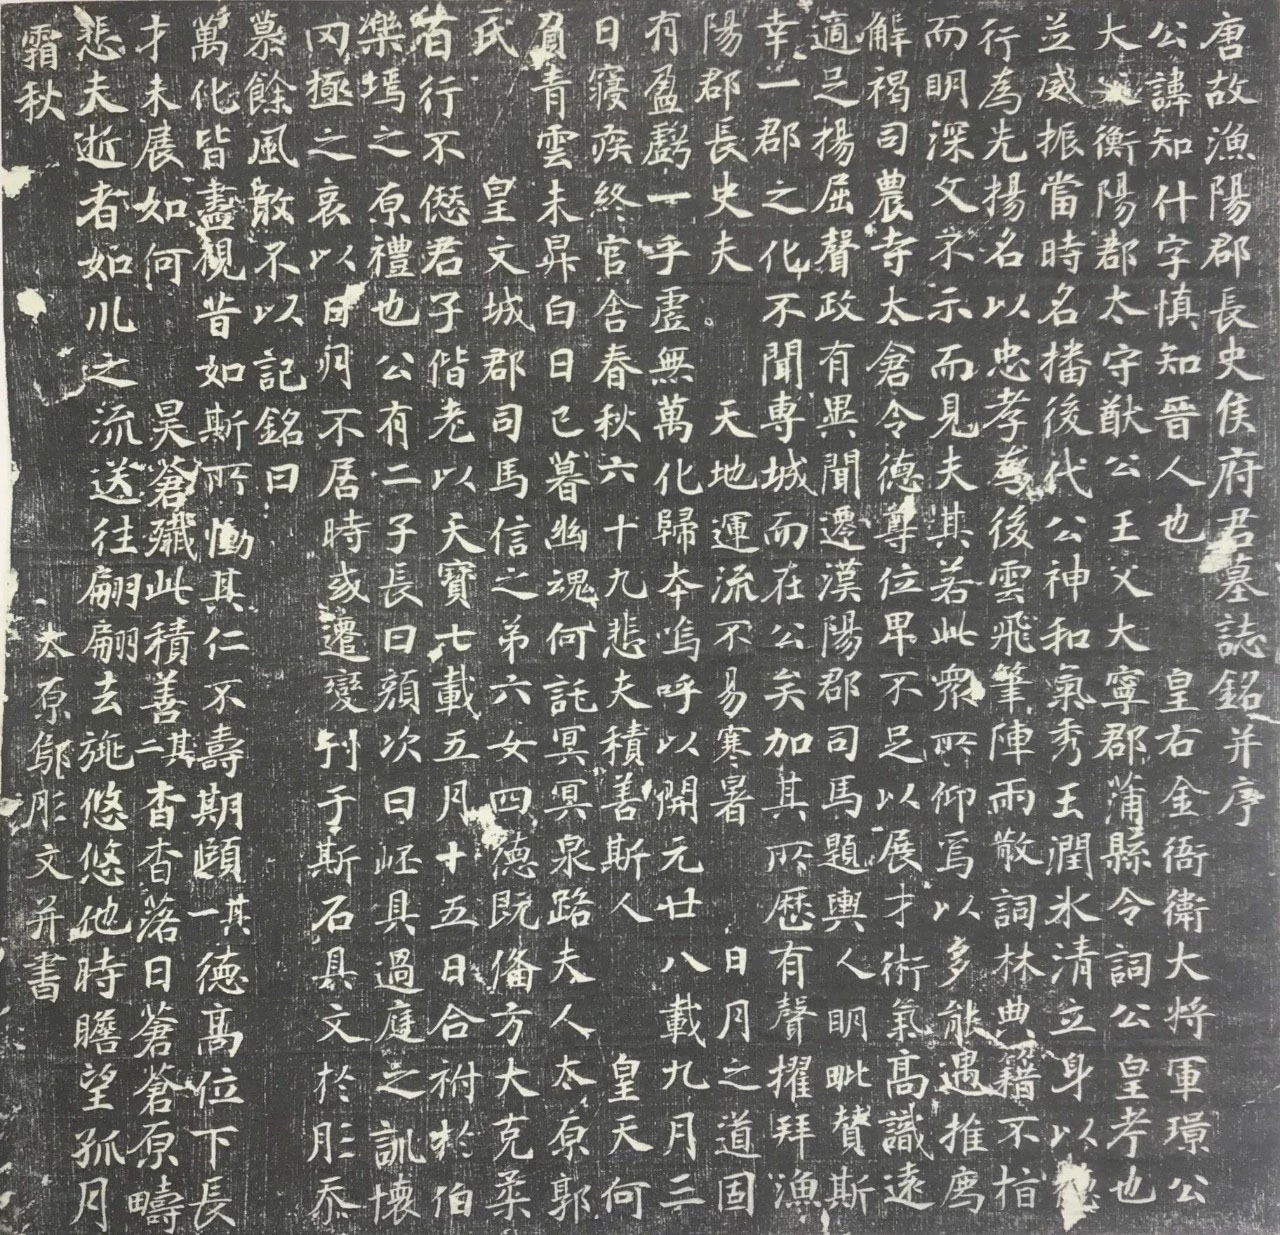 唐故漁陽郡長史侯府君墓誌銘并序
公諱知什字慎知晉人也 皇右金吾衛大將軍璟公
大父衡陽郡太守猷公王父大寧郡蒲縣令詞公皇考也
並威振當時名播後代公神和氣秀玉潤氷清立身以德
行為先揚名以忠孝為後雲飛筆陣雨散詞林典籍不㫖
而明深文不示而見夫其若此眾所仰焉以多能遇推薦
解褐司農寺太倉令德尊位卑不足以展才術氣高識遠
適足揚屈聲政有異聞遷漢陽郡司馬題輿人明毗贊斯
幸一郡之化不聞專城而在公矣加其所歷有聲擢拜漁
陽郡長史夫 天地運流不易寒暑 日月之道固
有盈虧一乎虛無萬化歸本嗚呼以開元廿八載九月二
日寢疾終官舍春秋六十九悲夫積善斯人 皇天何
負青雲未昇白日已暮幽魂何託冥冥泉路夫人太原郭
氏 皇文城郡司馬信之弟六女四德既俻方大克柔
苔行不僁君子偕老以天寶七載五月十五日合祔於伯
樂塢之原禮也公有二子長曰顏次曰岯具過庭之訓懷
罔極之哀以日月不居時或遷變刋于斯石具文於彤忝
慕餘風敢不以記銘曰
萬化皆盡視昔如斯所慟其仁不壽期頤其一德高位下長
才未展如何 昊蒼殲此積善其二杳杳落日蒼蒼原疇
悲夫逝者如川之流送往翩翩去旐悠悠他時瞻望孤月
霜秋 太原鄔彤文并書